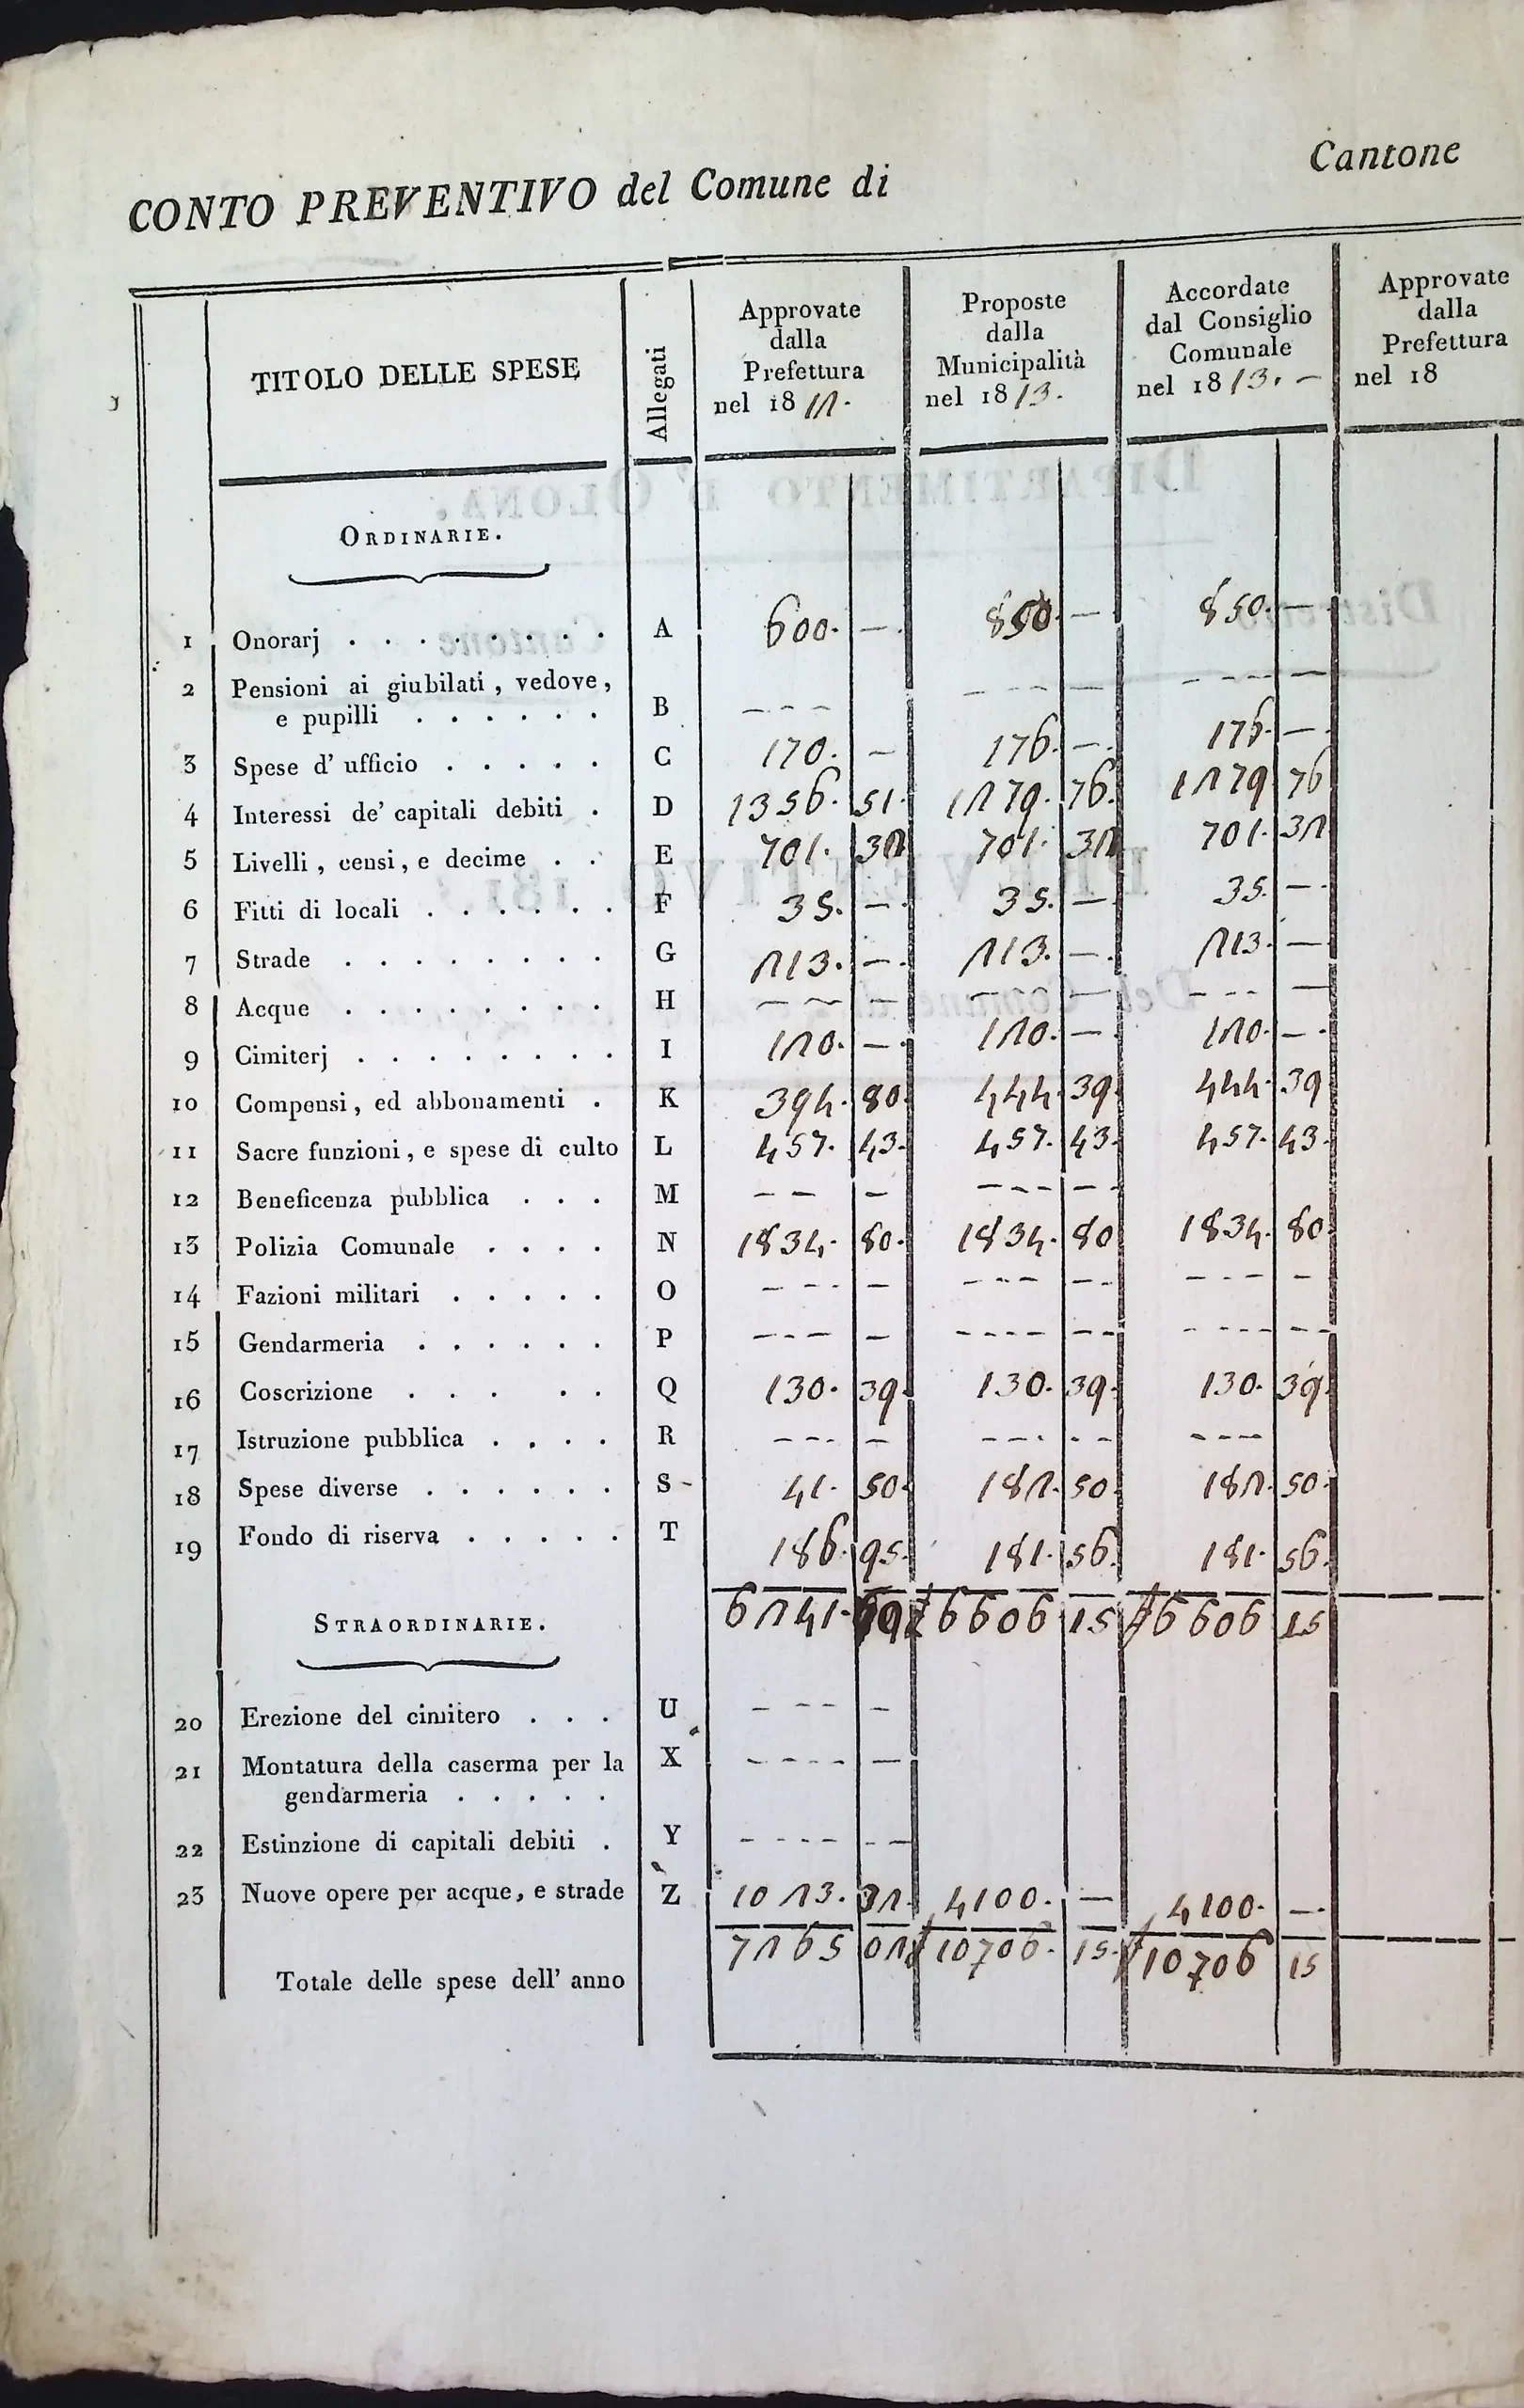 CONTO PREVENTIVO del Comune di Cantone
TITOLO DELLE SPESE
Allegati
Approvate
dalla
Prefettura
nel 1812.
Proposte
dalla
Municipalità
nel 1813.
Accordate
dal Consiglio
Comunale
nel 1813. –
Approvate
dalla
Prefettura
nel 18
ORDINARIE.
1 Onorarj . . . . . . . . A 600. — 850. — 850. —
2 Pensioni ai giubilati, vedove,
e pupilli . . . . . . B - - - - - - - - - - - -
3 Spese d' ufficio . . . . . C 170. — 176. — 176. —
4 Interessi de' capitali debiti . D 1356. 51. 1279. 76. 1279 76
5 Livelli, censi, e decime . . E 701. 32 701. 32 701. 32
6 Fitti di locali . . . . . . F 35. — 35. — 35. —
7 Strade . . . . . . . . G 213. — 213. — 213. —
8 Acque . . . . . . . . H - - - — - - - — - - - —
9 Cimiterj . . . . . . . . I 120. — 120. — 120. —
10 Compensi, ed abbonamenti . K 394. 80. 444. 39. 444. 39
11 Sacre funzioni, e spese di culto L 457. 43. 457. 43. 457. 43.
12 Beneficenza pubblica . . . M - - - - - - - - -
13 Polizia Comunale . . . . N 1834. 80. 1834. 80 1834. 80.
14 Fazioni militari . . . . . O - - - - - - - - - - - - - -
15 Gendarmeria . . . . . . P - - - - - - - - - - - - - - - -
16 Coscrizione . . . . . Q 130. 39. 130. 39. 130. 39.
17 Istruzione pubblica . . . . R - - - - - - - - - - - - - -
18 Spese diverse . . . . . . S - 41. 50. 182. 50. 182. 50.
19 Fondo di riserva . . . . . T 186. 95. 181. 56. 181. 56.
6241. 6606 15 6606 15
STRAORDINARIE.
20 Erezione del cimitero . . . U - - - -
21 Montatura della caserma per la X - - - - —
gendarmeria . . . . .
22 Estinzione di capitali debiti . Y - - - - - -
23 Nuove opere per acque, e strade Z 1023. 32. 4100. — 4100. —
Totale delle spese dell' anno 7265 02 10706. 15. 10706 15